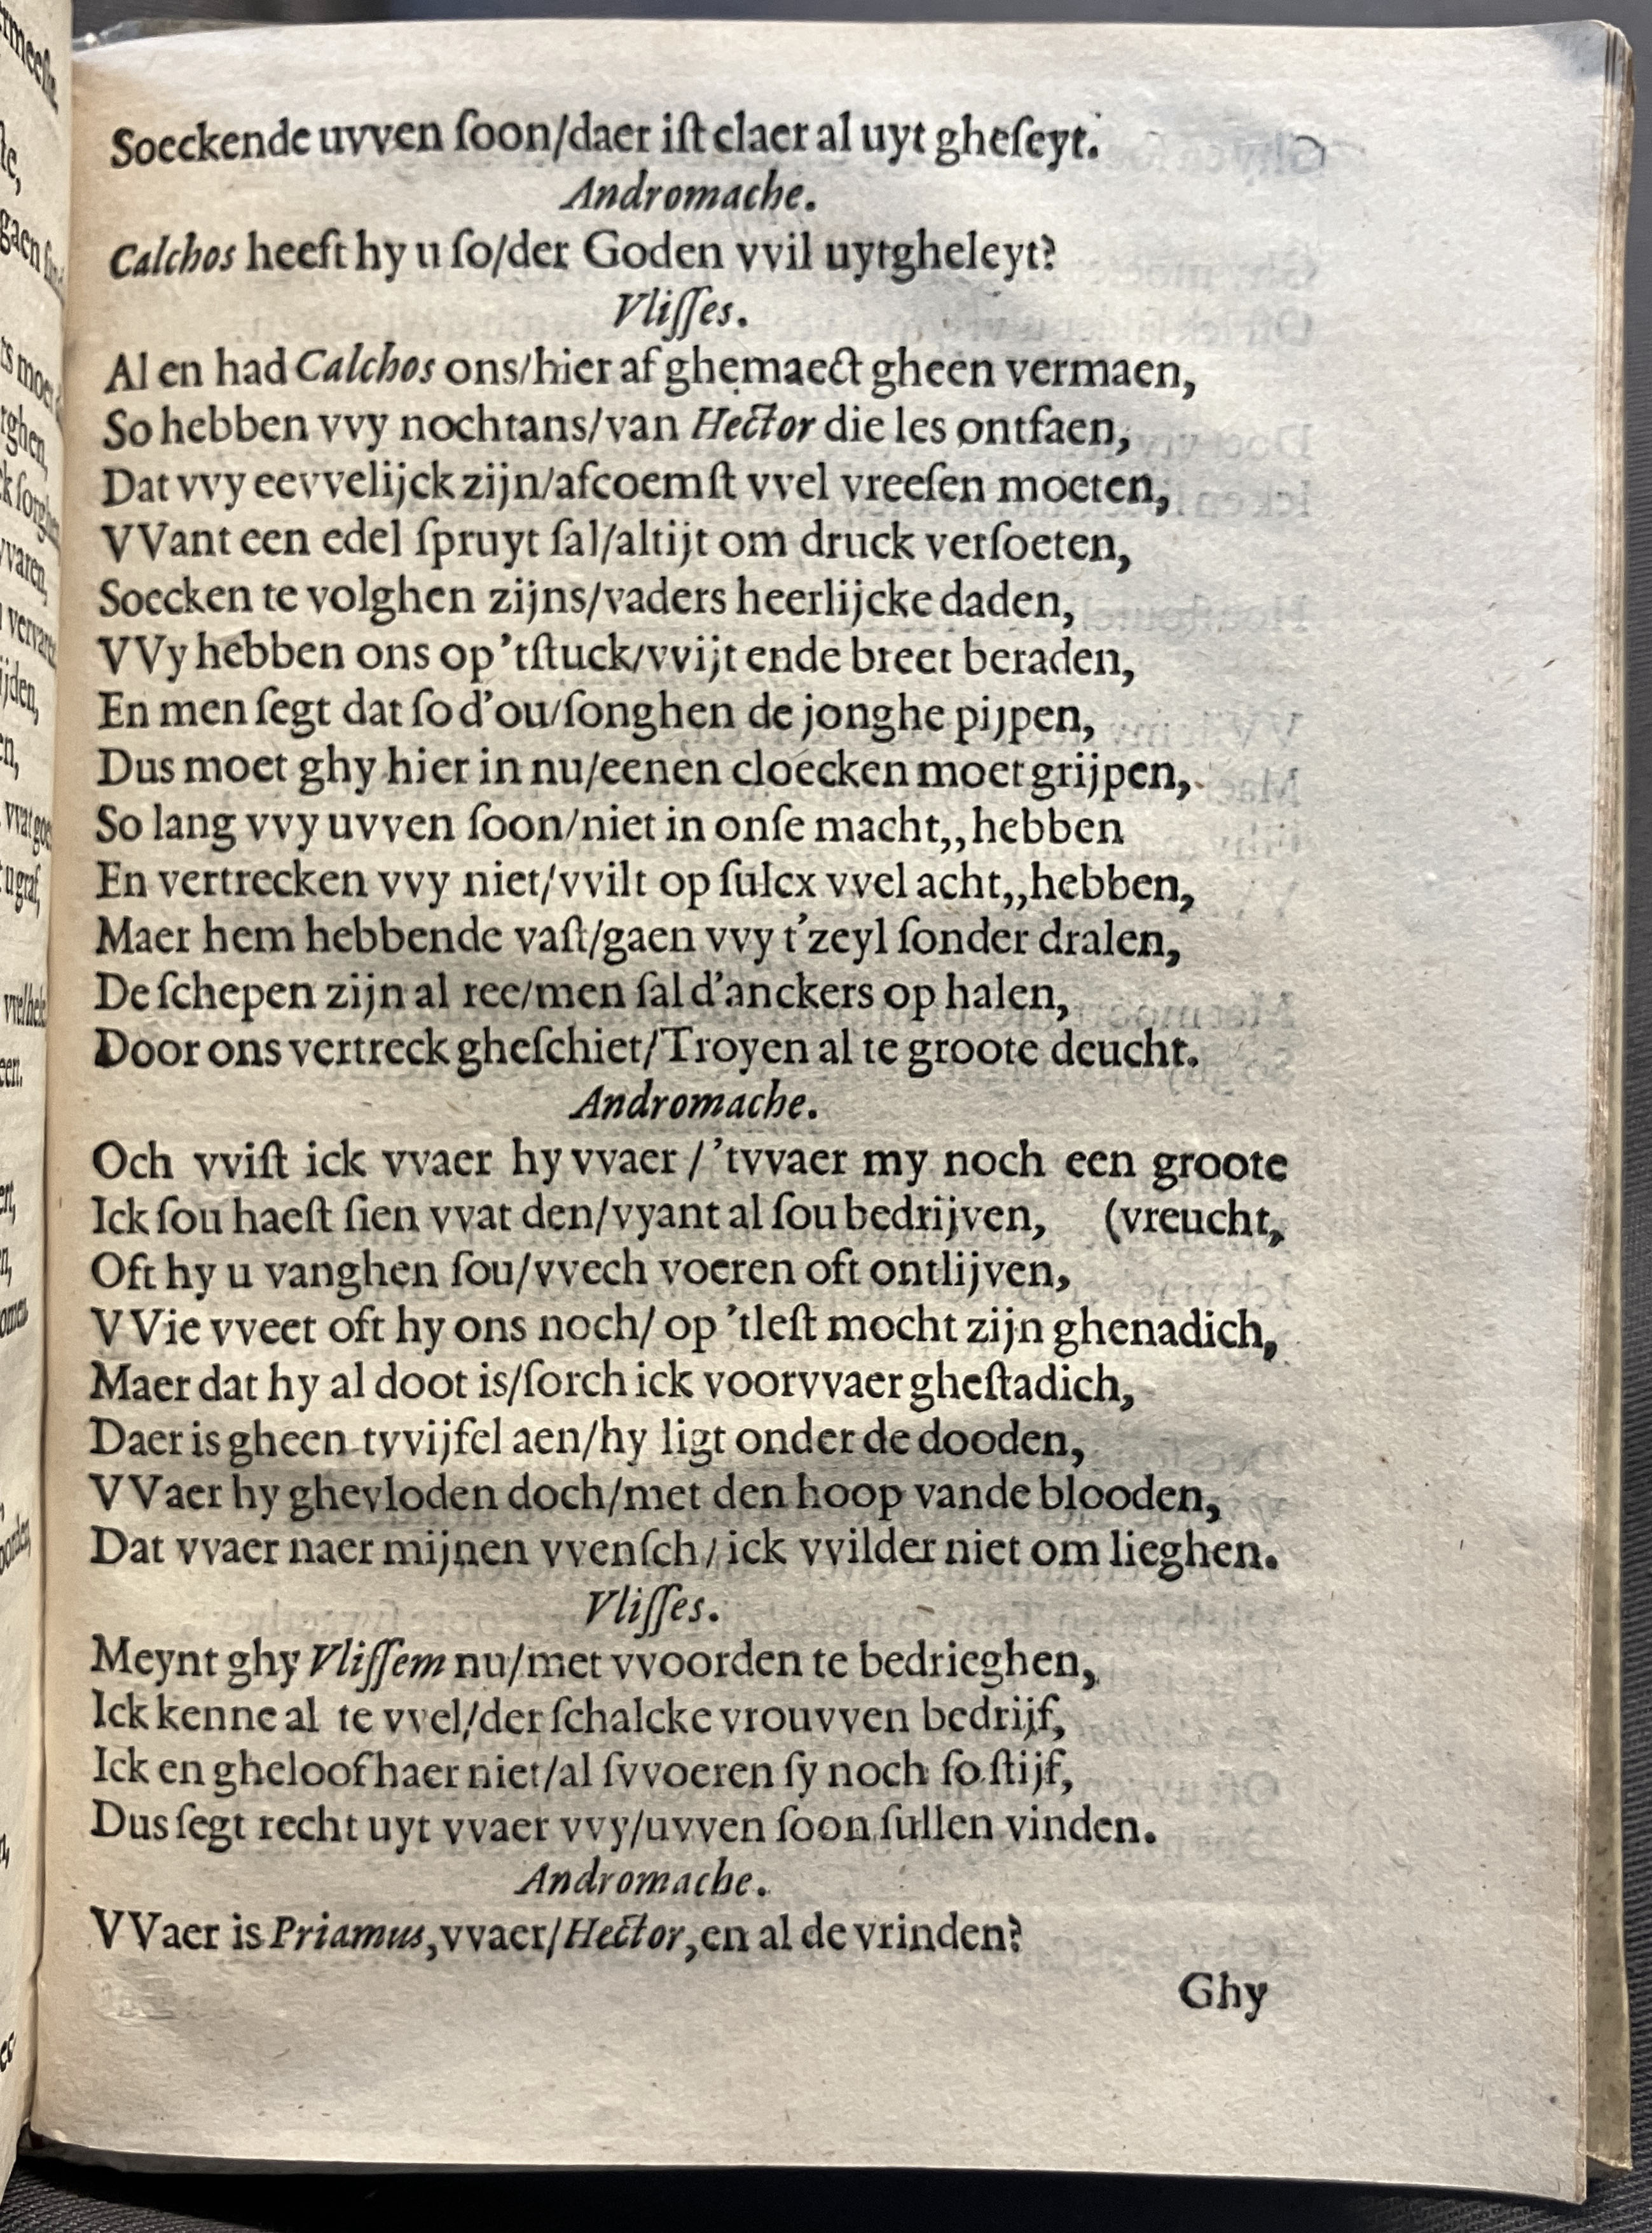 Soeckende uvven ſoon/daer iſt claer al uyt gheſeyt.
Andromache.
Calchos heeft hy u ſo/der Goden vvil uytgheleyt?
Vliſſes.
Al en had Calchos ons/hier af ghemaect gheen vermaen,
So hebben vvy nochtans/van Hector die les ontfaen,
Dat vvy eevvelijck zijn/afcoemſt vvel vreeſen moeten,
VVant een edel ſpruyt ſal/altijt om druck verſoeten,
Soecken te volghen zijns/vaders heerlijcke daden,
VVy hebben ons op 'tſtuck/vvijt ende breet beraden,
En men ſegt dat ſo d'ou/ſonghen de jonghe pijpen,
Dus moet ghy hier in nu/eenen cloecken moet grijpen,
So lang vvy uvven ſoon/niet in onſe macht,,hebben
En vertrecken vvy niet/vvilt op ſulcx vvel acht,,hebben,
Maer hem hebbende vaſt/gaen vvy t'zeyl ſonder dralen,
De ſchepen zijn al ree/men ſal d'anckers op halen,
Door ons vertreck gheſchiet/Troyen al te groote deucht.
Andromache.
Och vviſt ick vvaer hy vvaer / 'tvvaer my noch een groote
Ick ſou haeſt ſien vvat den/vyant al ſou bedrijven, (vreucht,
Oft hy u vanghen ſou/vvech voeren oft ontlijven,
VVie vveet oft hy ons noch/ op 'tleſt mocht zijn ghenadich,
Maer dat hy al doot is/ſorch ick voorvvaer gheſtadich,
Daer is gheen tvvijfel aen/hy ligt onder de dooden,
VVaer hy ghevloden doch/met den hoop vande blooden,
Dat vvaer naer mijnen vvenſch/ ick vvilder niet om lieghen.
Vliſſes.
Meynt ghy Vliſſem nu/met vvoorden te bedrieghen,
Ick kenne al te vvel/der ſchalcke vrouvven bedrijf,
Ick en gheloof haer niet/al ſvvoeren ſy noch ſo ſtijf,
Dus ſegt recht uyt vvaer vvy/uvven ſoon ſullen vinden.
Andromache.
VVaer is Priamus,vvaer/Hector,en al de vrinden?
Ghy